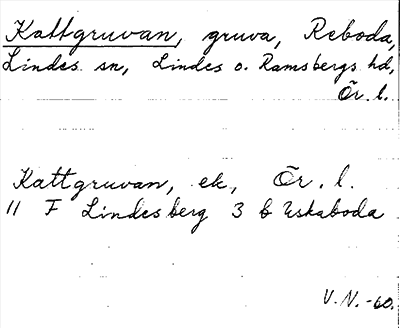 Kattgruvan, gruva, Reboda,
Lindes sn, Lindes o. Ramsbergs hd,
Ör. l.
Kattgruvan, ek, Ör. l.
11 F Lindesberg 3 b Uskaboda
V.N.-60.